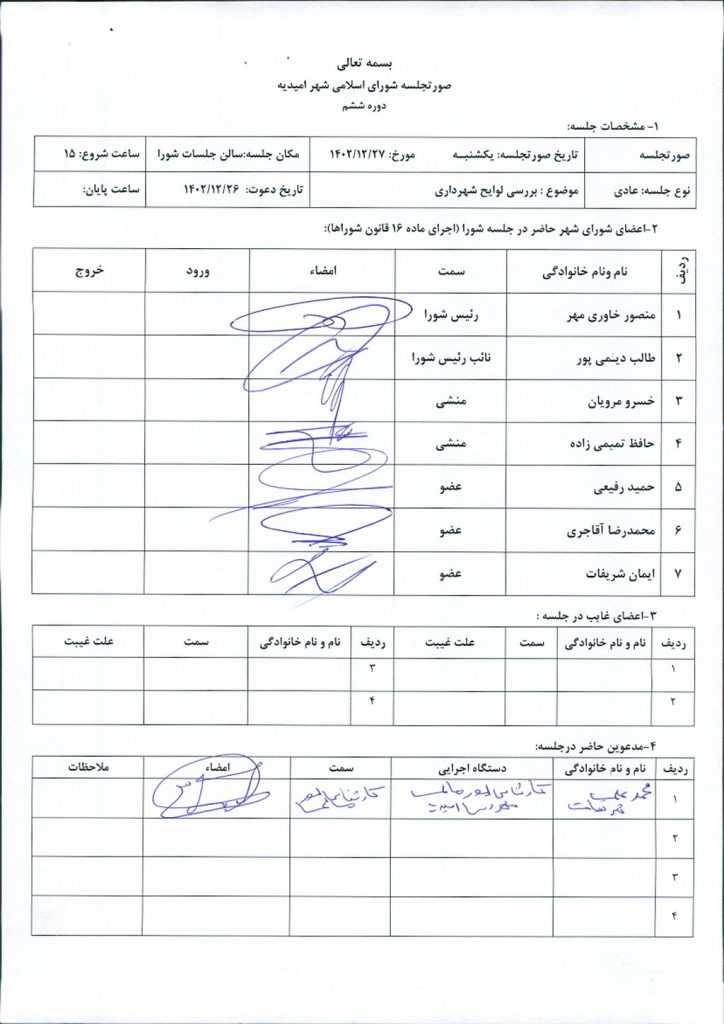 بسمه تعالی
صورتجلسه شورای اسلامی شهر امیدیه
دوره ششم
۱- مشخصات جلسه:
صورتجلسه تاریخ صورتجلسه: یکشنبه مورخ: ۱۴۰۲/۱۲/۲۷ مکان جلسه:سالن جلسات شورا ساعت شروع: ۱۵
نوع جلسه: عادی موضوع : بررسی لوایح شهرداری تاریخ دعوت: ۱۴۰۲/۱۲/۲۶ ساعت پایان:
۲-اعضای شورای شهر حاضر در جلسه شورا (اجرای ماده ۱۶ قانون شوراها):
ردیف نام ونام خانوادگی سمت امضاء ورود خروج
۱ منصور خاوری مهر رئیس شورا
۲ طالب دیمی پور نائب رئیس شورا
۳ خسرو مرویان منشی
۴ حافظ تمیمی زاده منشی
۵ حمید رفیعی عضو
۶ محمدرضا آقاجری عضو
۷ ایمان شریفات عضو
۳-اعضای غایب در جلسه :
ردیف نام و نام خانوادگی سمت علت غیبت ردیف نام و نام خانوادگی سمت علت غیبت
۱ ۳
۲ ۴
۴-مدعوین حاضر درجلسه:
ردیف نام و نام خانوادگی دستگاه اجرایی سمت امضاء ملاحظات
۱ محمد کارشناس
۲
۳
۴